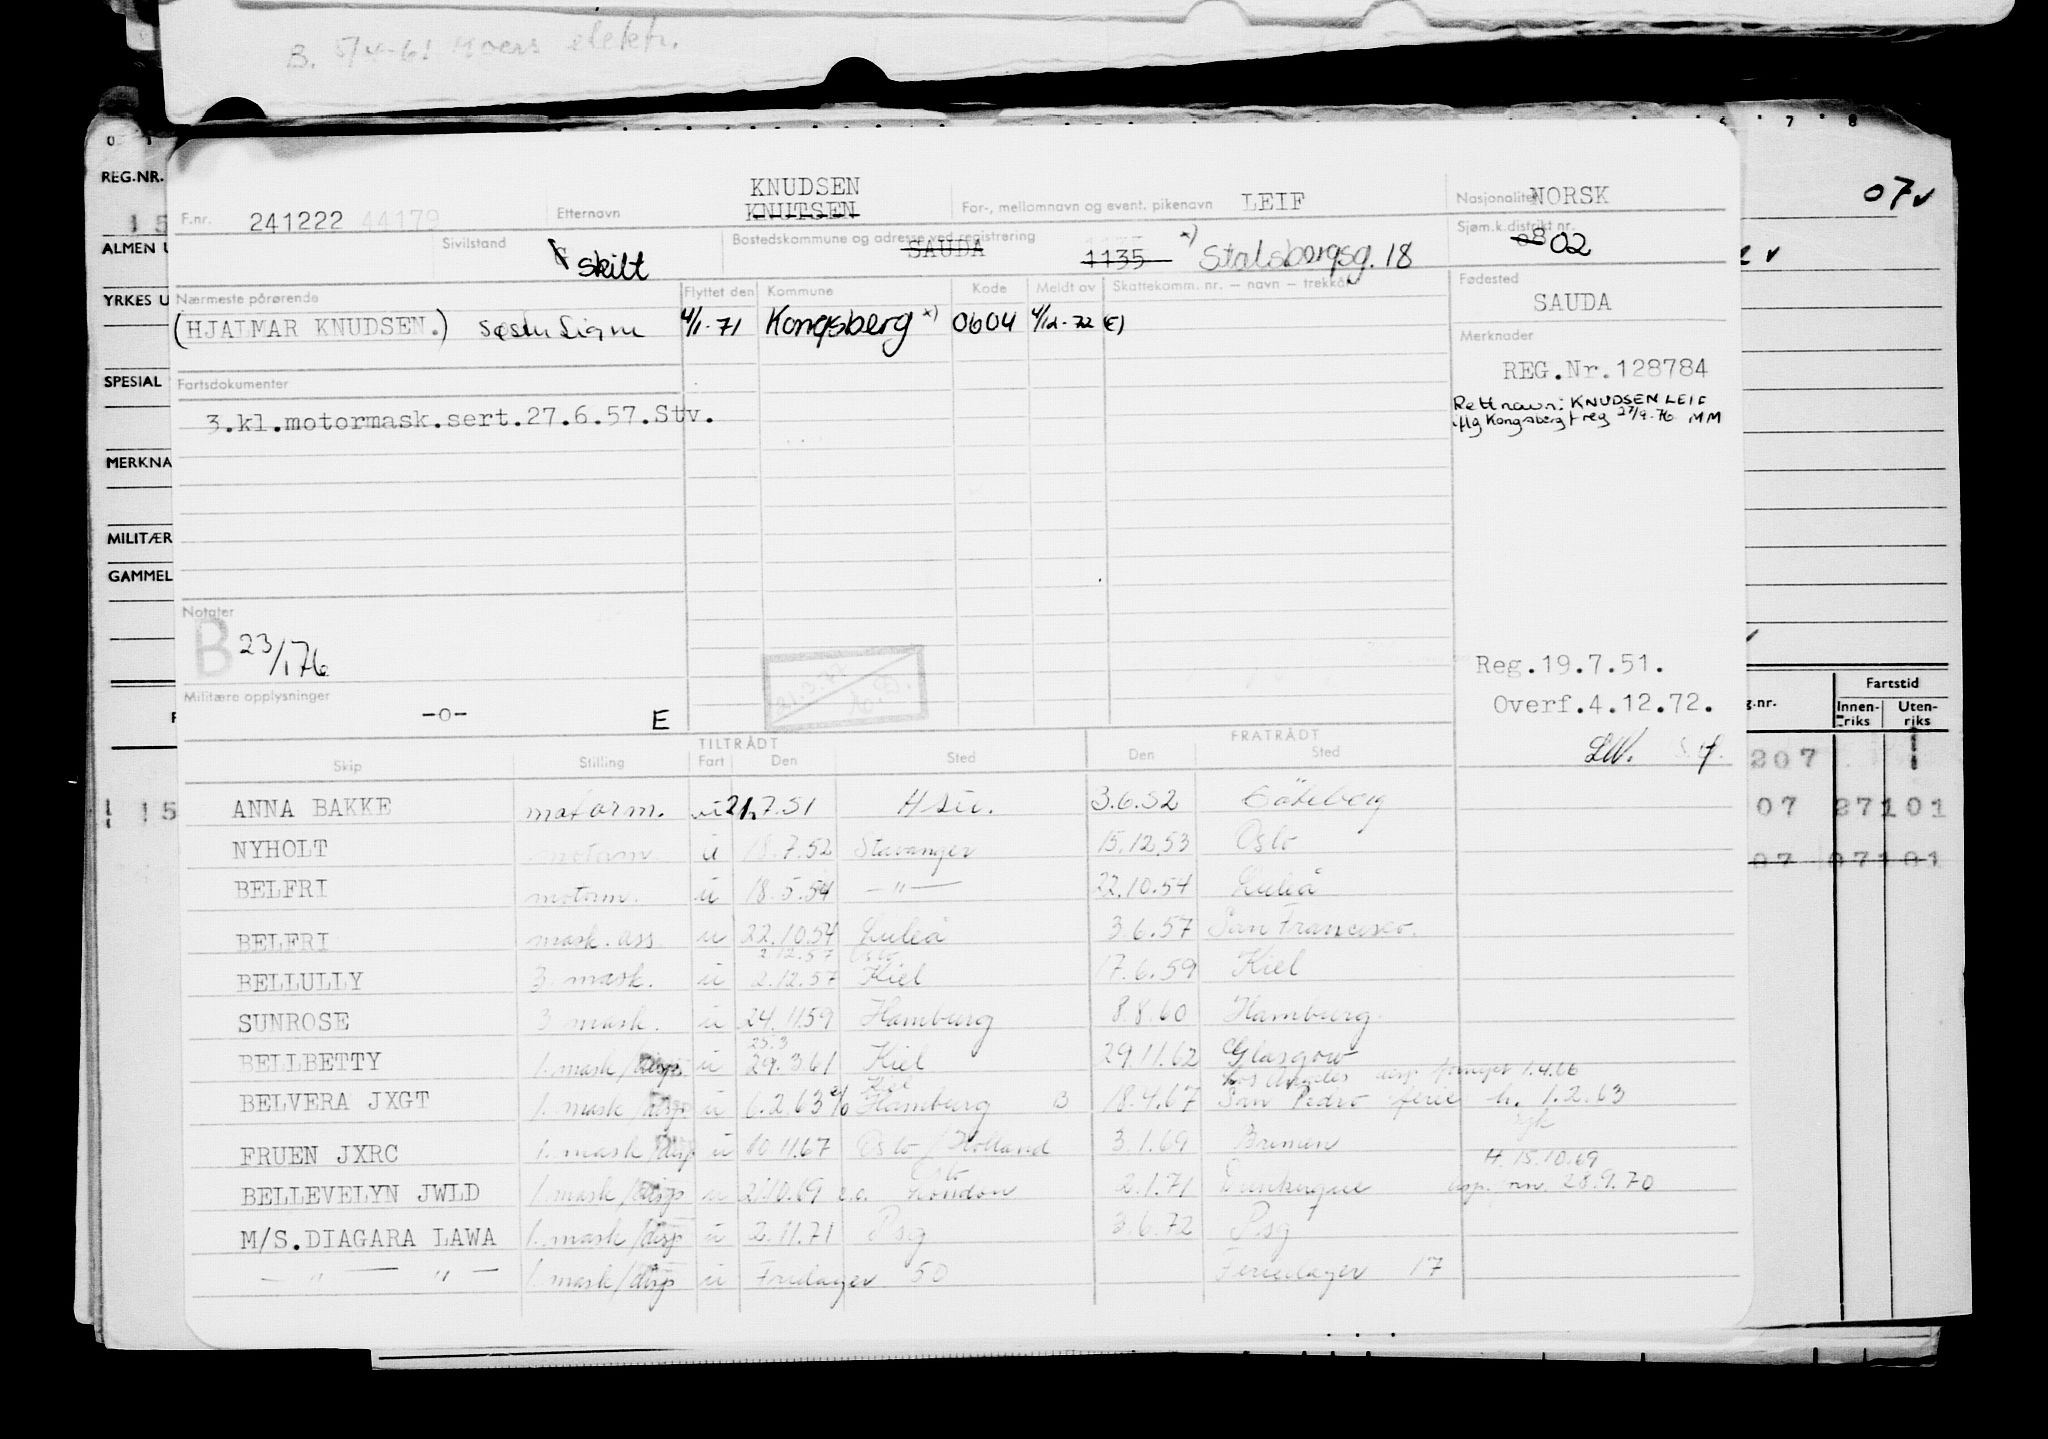 B. elektr.
REG.NR.
ALMEN U
YRKES U
SPESIAL
MERKNA
MILITÆR
GAMMEL
07
7 8
F.nr. 241222 44179
Etternavn KNUDSEN
KNUTSEN
For-, mellomnavn og event. pikenavn LEIF
Nasjonalitet NORSK
Sivilstand skilt
Bostedskommune og adresse ved registrering SAUDA 1135 x) Stalsborgsg. 18
Sjøm.k.distrikt nr. 08 02
Nærmeste pårørende
(HJALMAR KNUDSEN.) søster Signe
Flyttet den Kommune Kode Meldt av Skattekomm. nr. — navn — trekkår
4/1-71 Kongsberg x) 0604 4/12-72 (E)
Fødested
SAUDA
Merknader
REG.Nr.128784
Rett navn: KNUDSEN LEIF
iflg Kongsberg f reg 27/9-76 MM
Fartsdokumenter
3.kl.motormask.sert.27.6.57.Stv.
Notater
B 23/1 76
Militære opplysninger
-o- E
Reg.19.7.51.
Overf.4.12.72.
LW.
Fartstid
g.nr. Innen-riks Uten-riks
207
07 27101
07 07101
TILTRÅDT FRATRÅDT
Skip Stilling Fart Den Sted Den Sted
ANNA BAKKE motorm. u 21.7.51 3.6.52 Göteborg
NYHOLT motorm. u 18.7.52 Stavanger 15.12.53 Oslo
BELFRI motorm. u 18.5.54 — " — 22.10.54 Luleå
BELFRI mask. ass u 22.10.54 Luleå 3.6.57 San Francisco.
2.12.57 Oslo
BELLULLY 3 mask. u 2.12.57 Kiel 17.6.59 Kiel
SUNROSE 3 mask. u 24.11.59 Hamburg 8.8.60 Hamburg.
25.3
BELLBETTY 1. mask/disp u 29.3.61 Kiel 29.11.62 Glasgow
Kiel Los Angeles 1.4.66
BELVERA JXGT 1. mask/disp u 6.2.63 Hamburg B 18.4.67 San Pedro ferie h. 1.2.63
FRUEN JXRC 1. mask/disp u 10.11.67 Oslo/Holland 3.1.69 Bremen
Oslo H. 15.10.69
BELLEVELYN JWLD 1. mask/disp u 2.10.69 London 2.1.71 Dunkerque 28.9.70
M/S.DIAGARA LAWA 1. mask/disp u 2.11.71 Psg 3.6.72 Psg
— " — " — 1. mask/disp u Fridager 50 Feriedager 17